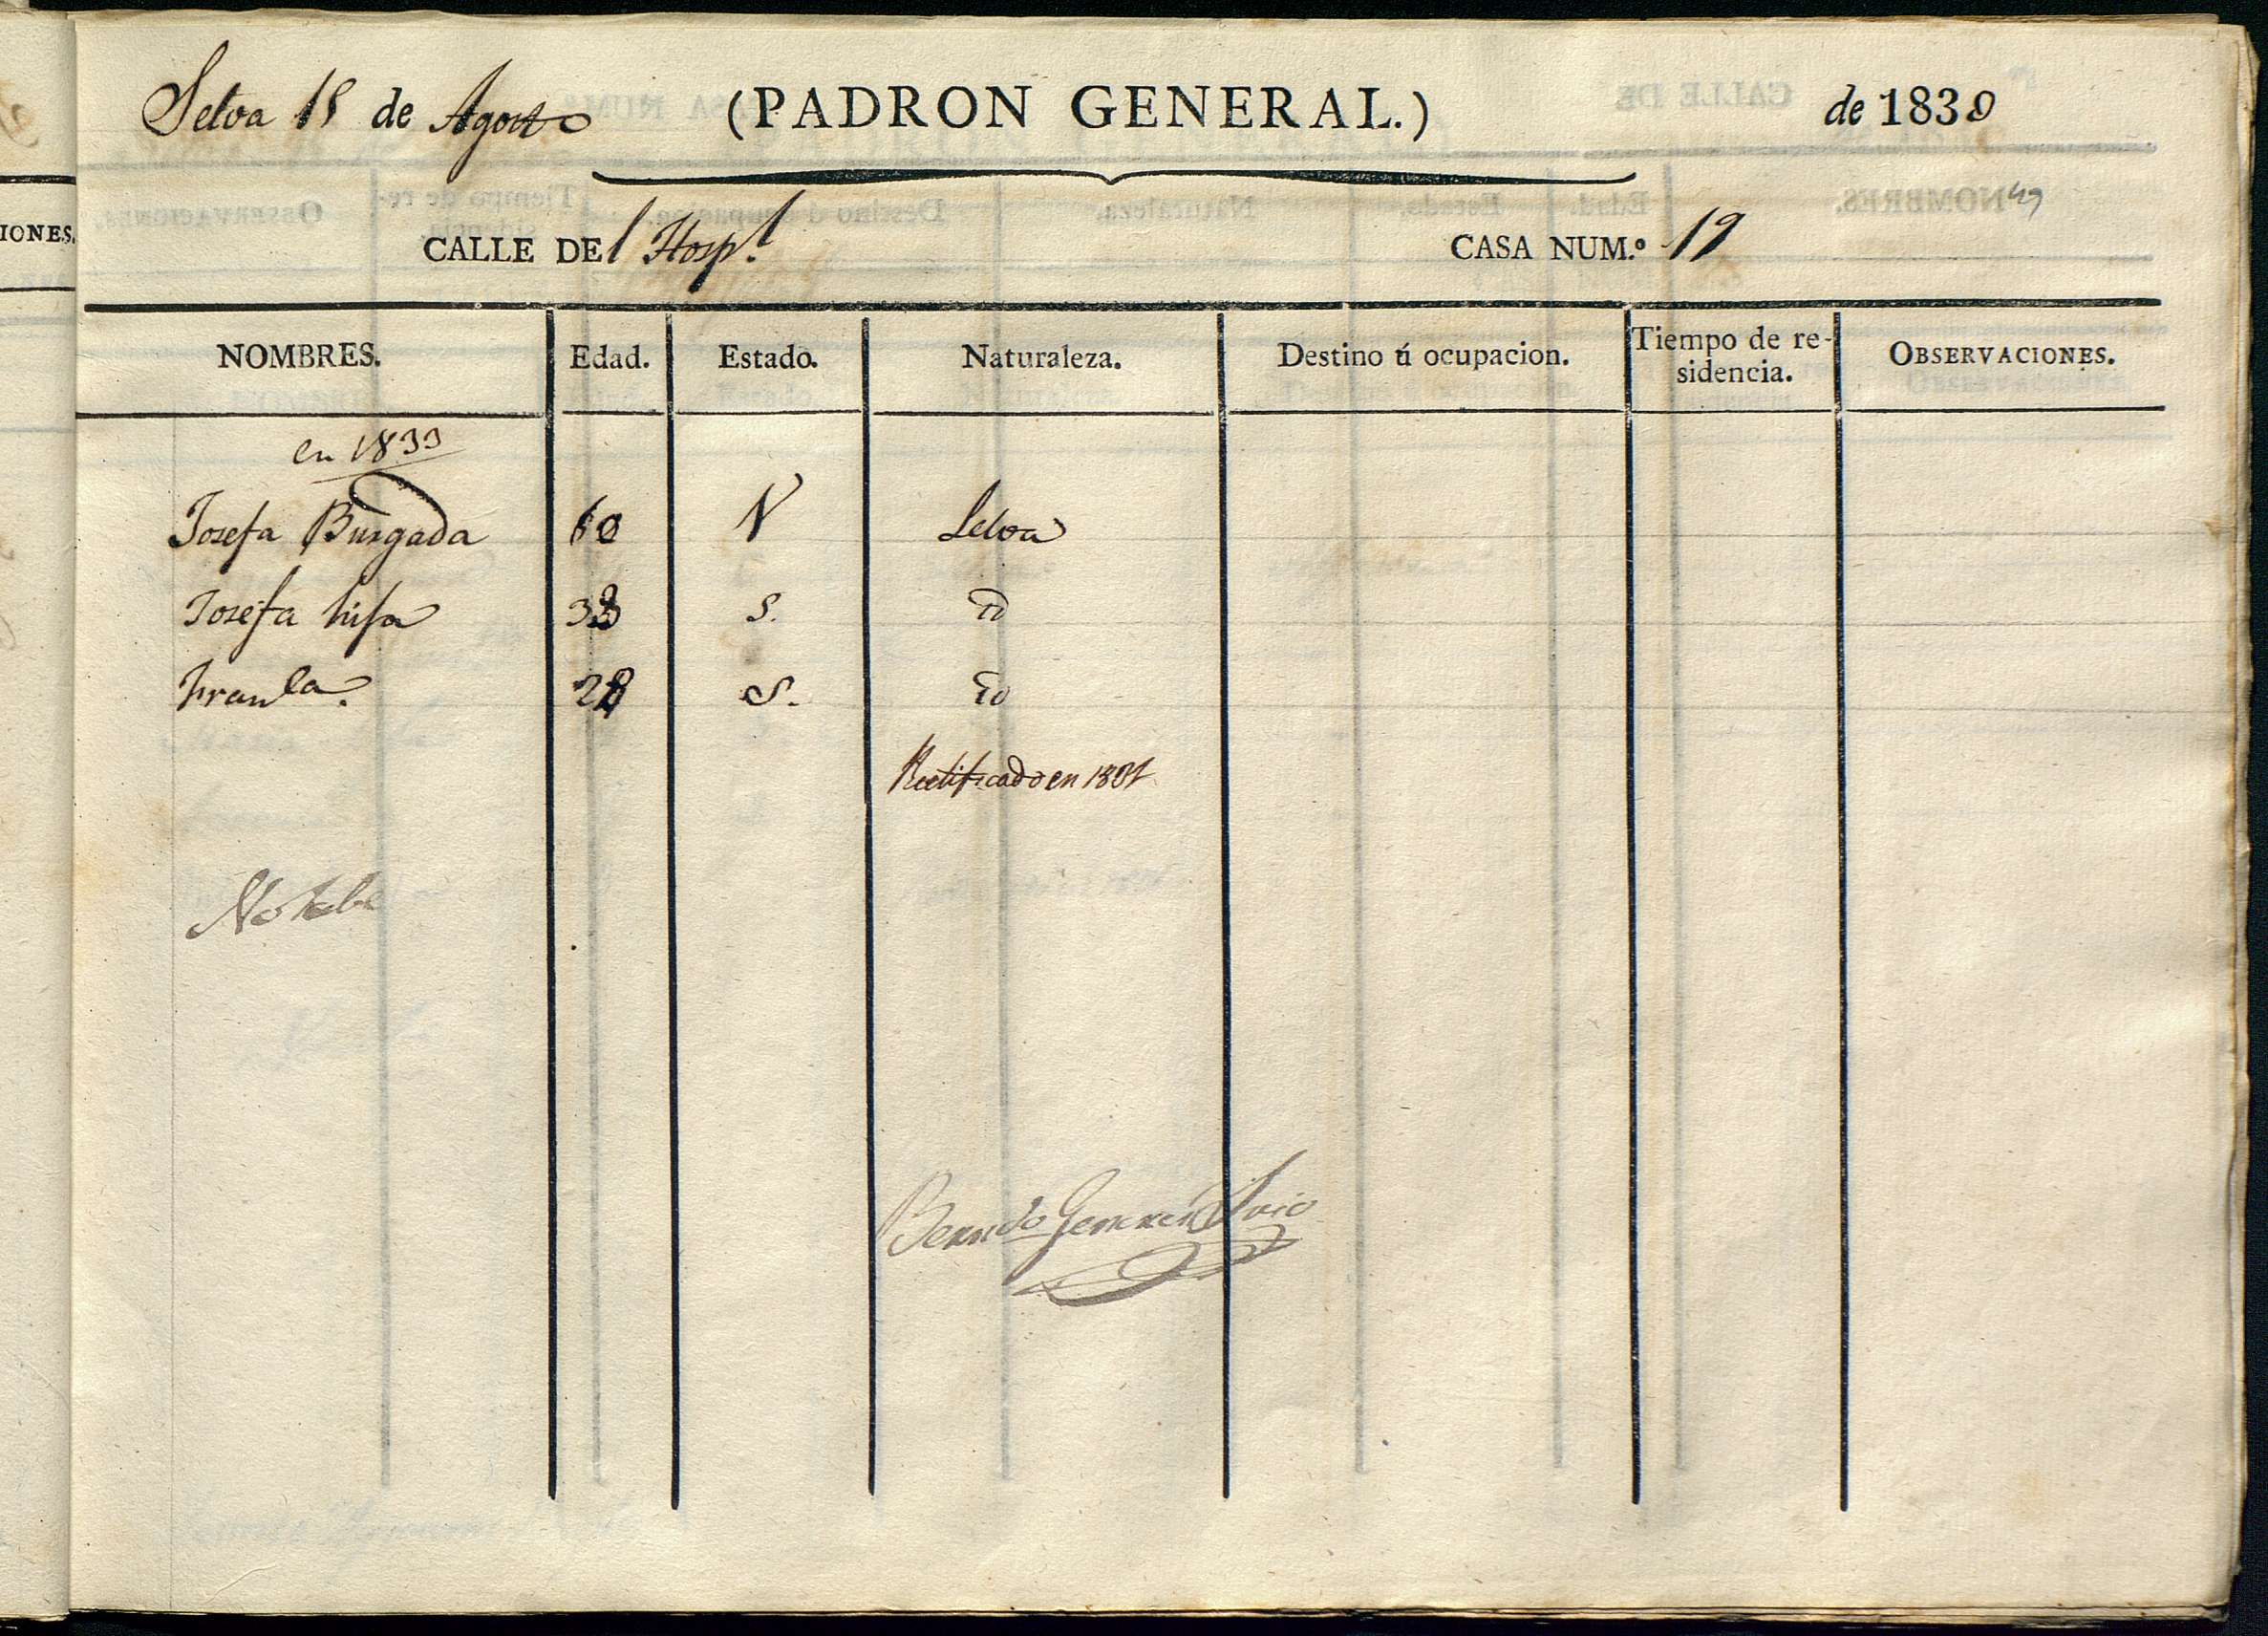 Selva 18 de Agosto (PADRON GENERAL.) de 1830
49
CALLE DEl Hosp.l CASA NUM.º 19
IONES.
NOMBRES. Edad. Estado. Naturaleza. Destino ú ocupacion. Tiempo de re-sidencia. OBSERVACIONES.
en 1833
Josefa Burgada 60 V Selva
Josefa hija 33 S. id
Fran.ca 28 S. id
Rectificado en 1831